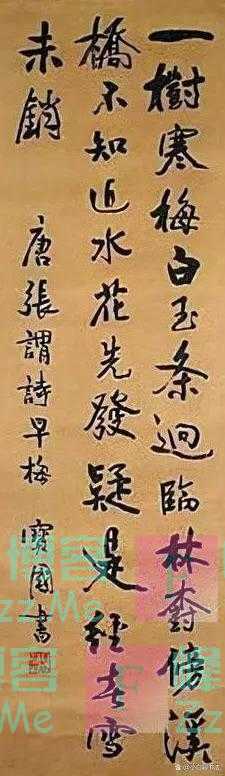 一樹寒梅白玉条迥臨林村傍溪
橋不知近水花先發疑是經春雪
未銷
唐張謂詩早梅 寶國書